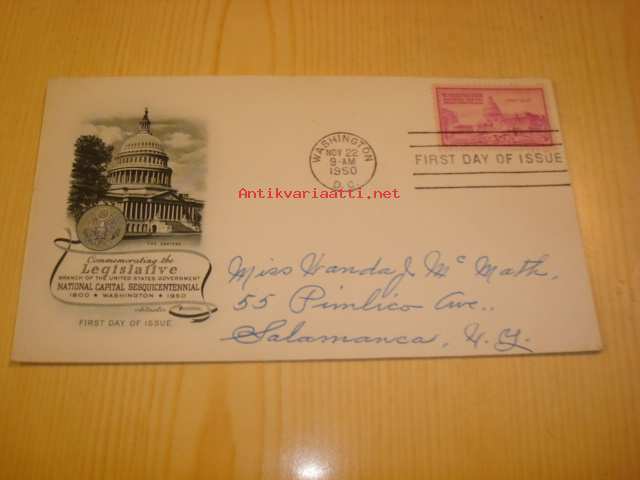 WASHINGTON
NOV 22
9-AM
1950
D.C.
FIRST DAY OF ISSUE
Antikvariaatti.net
THE CAPITOL
Commemorating the
Legislative
BRANCH OF THE UNITED STATES GOVERNMENT
NATIONAL CAPITAL SESQUICENTENNIAL
1800 ★ WASHINGTON ★ 1950
FIRST DAY OF ISSUE
Miss Wanda J. McMath,
55 Pimlico Ave.,
Salamanca, N.Y.